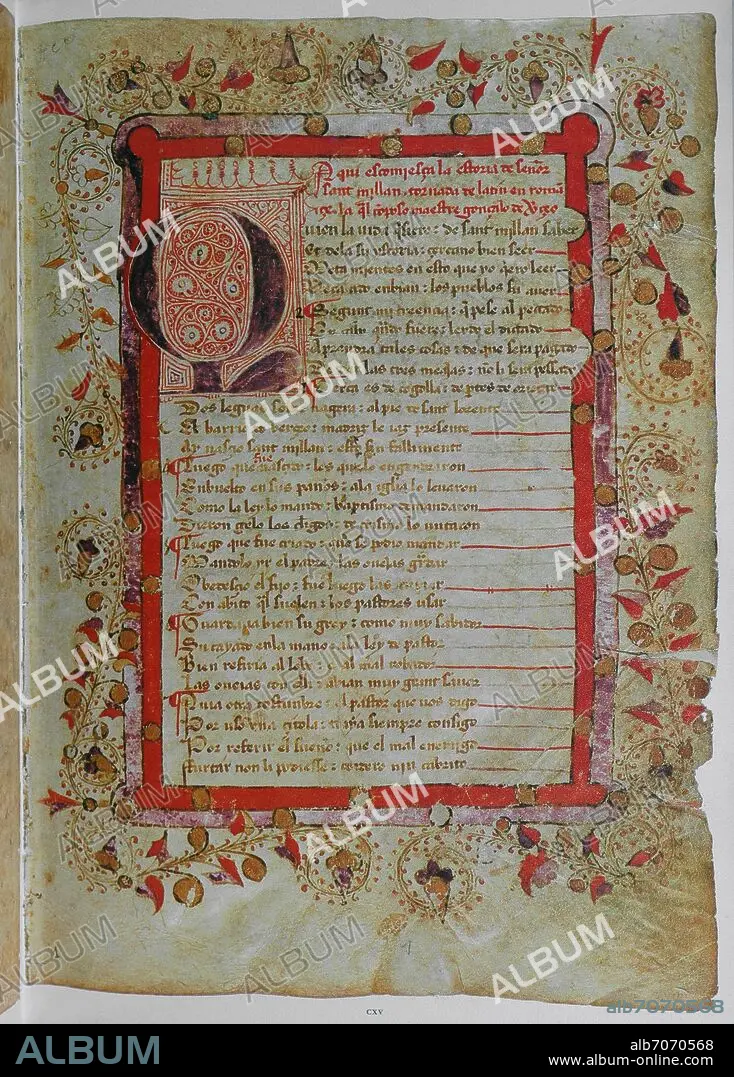 Aqui escomjesça la estoria de señor
sant millan tornada de latin en romã
çe la ql conposo maestre gonçalo de
Quien la vida qsiere: de sant millan saber
Et dela su ystoria: çertano bien seer
Meta mientes en esto que yo qero leer
Vera
Segunt mj creençia: q pese al pecado
En cabo qndo fuere: leydo el dictado
Aprendra tales cosas: de que sera pagado
De las tres meajas: no li sera pessado
Çerca es de cogolla: de ptes de orient
Dos leguas nagera: al pie de sant lorente
El barrio de berçeo: madriz le iaz presente
Ay nasçio sant millan: esto sin falliment
fue
Luego que nasçio: los que lo engendraron
Enbuelto en sus panos: ala iglia lo levaron
Como la ley lo manda: baptismo demandaron
Dieron gelo los cligos: de crisma lo untaron
Luego que fue criado: que se podio mandar
Mandolo yr el padre: las ovejas guardar
Obedesçio el fijo: fue luego las curiar
Con abito ql suelen: los pastores usar
Guardaua bien su grey: como muy sabidor
Su cayado enla mano: a ley de pastor
Bien refiria al lobo: al mal robador
Las ovejas con elli: avian muy grant sabor
Avia otra costumbre: el pastor que vos digo
Por uso vna çitola: traya siempre consigo
Por referir el sueño: que el mal enemigo
Furtar non li podiesse: cordero njn cabrito
CXV
ALBUM
alb7070568
www.album-online.com